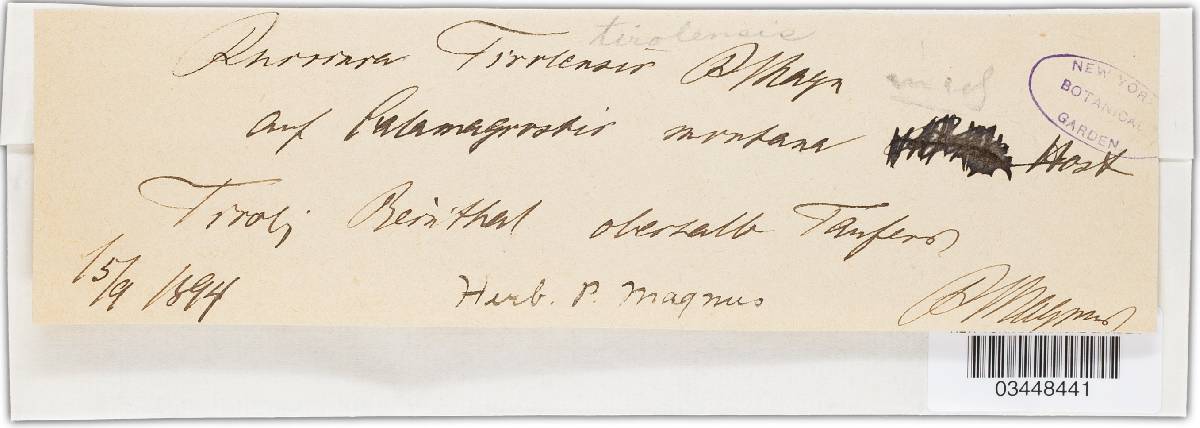 tirolensis
Puccinia Tirolensis P Magn
auf Calamagrostis montana Host
NEW YORK
BOTANICAL
GARDEN
Tirol; Reinthal oberhalb Taufers
15/9 1894
Herb. P. Magnus
P Magnus
03448441